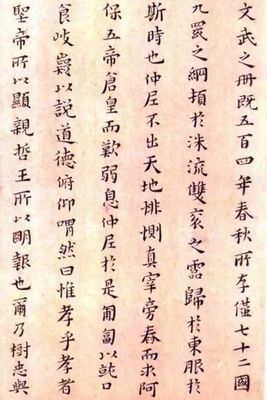 文武之冊既五百四年春秋所存僅七十二國
九罭之綱頓於洙流雙袞之露歸於東服於
斯時也仲尼不出天地悱惻真宰旁春而求阿
保五帝倉皇而歎弱息仲尼於是匍匐以就口
食岐嶷以説道德俯仰喟然曰惟孝乎孝者
聖帝所以顯親哲王所以明報也爾乃樹忠與